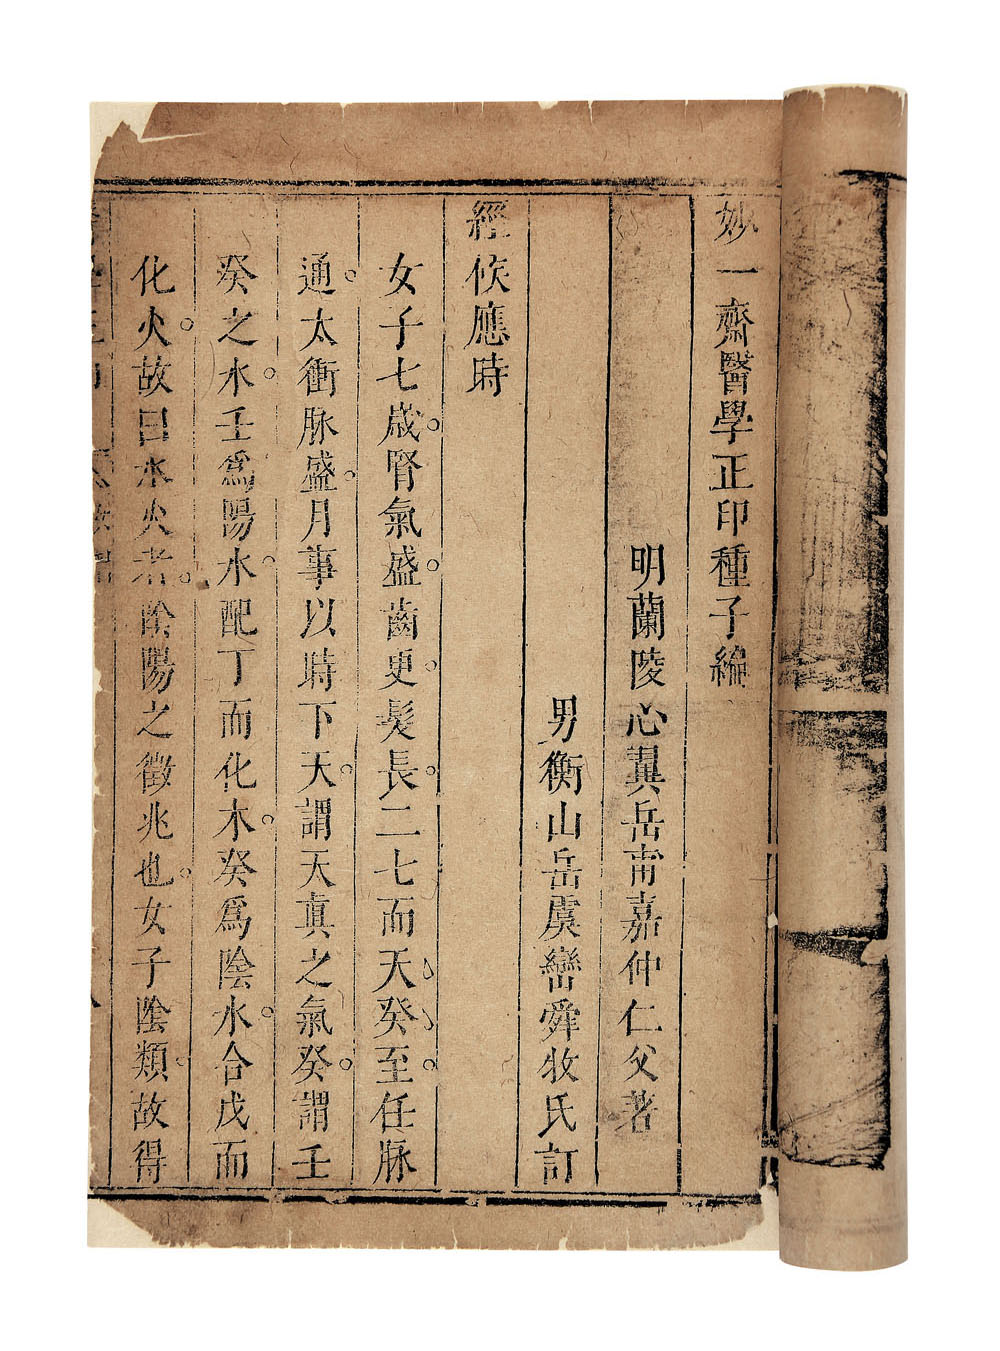 妙一齋醫學正印種子編
明蘭陵心翼岳甫嘉仲仁父著
男衡山岳虞巒舜牧氏訂
經候應時
女子七歲腎氣盛齒更髮長二七而天癸至任脉
通太衝脉盛月事以時下天謂天真之氣癸謂壬
癸之水壬爲陽水配丁而化木癸爲陰水合戊而
化火故曰水火者陰陽之徵兆也女子陰類故得